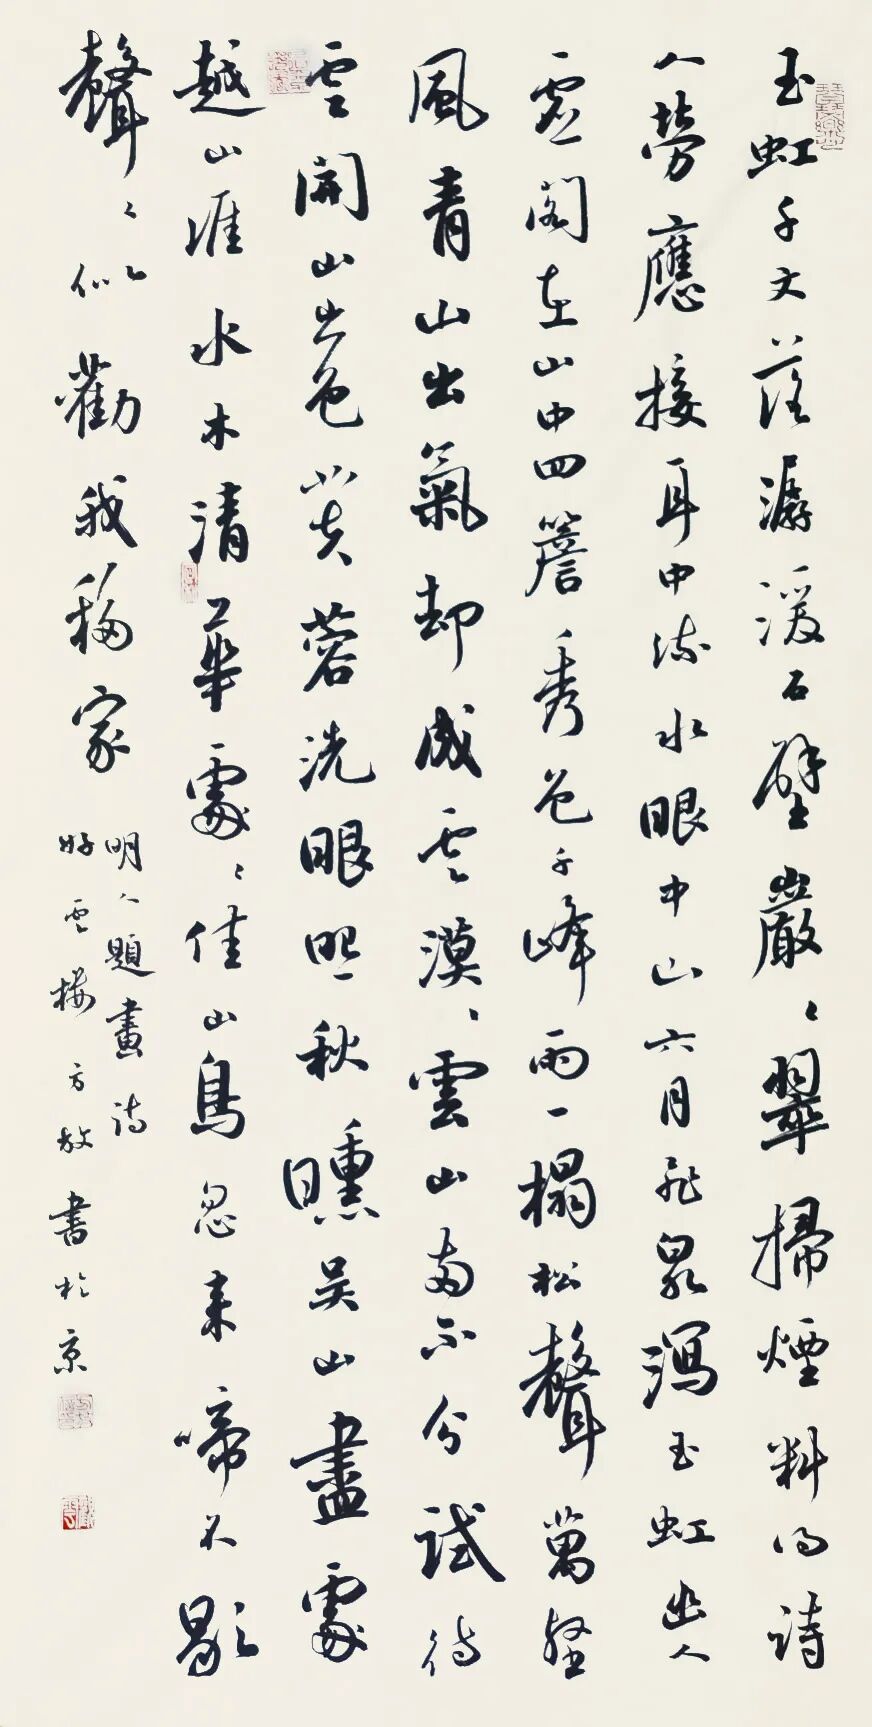 玉虹千丈落潺湲石壁巖々翠掃煙料得詩
人勞應接耳中流水眼中山六月飛泉瀉玉虹幽人
虛閣在山中四簷秀色千峰雨一榻松聲萬壑
風青山出氣却成雲漠々雲山両不分試待
雲開山出色芙蓉洗眼明秋曛吴山盡處
越山涯水木清華處々佳山鳥忽来啼不歇
聲々似勸我移家
明人題畫詩
好雲樓方放書於京